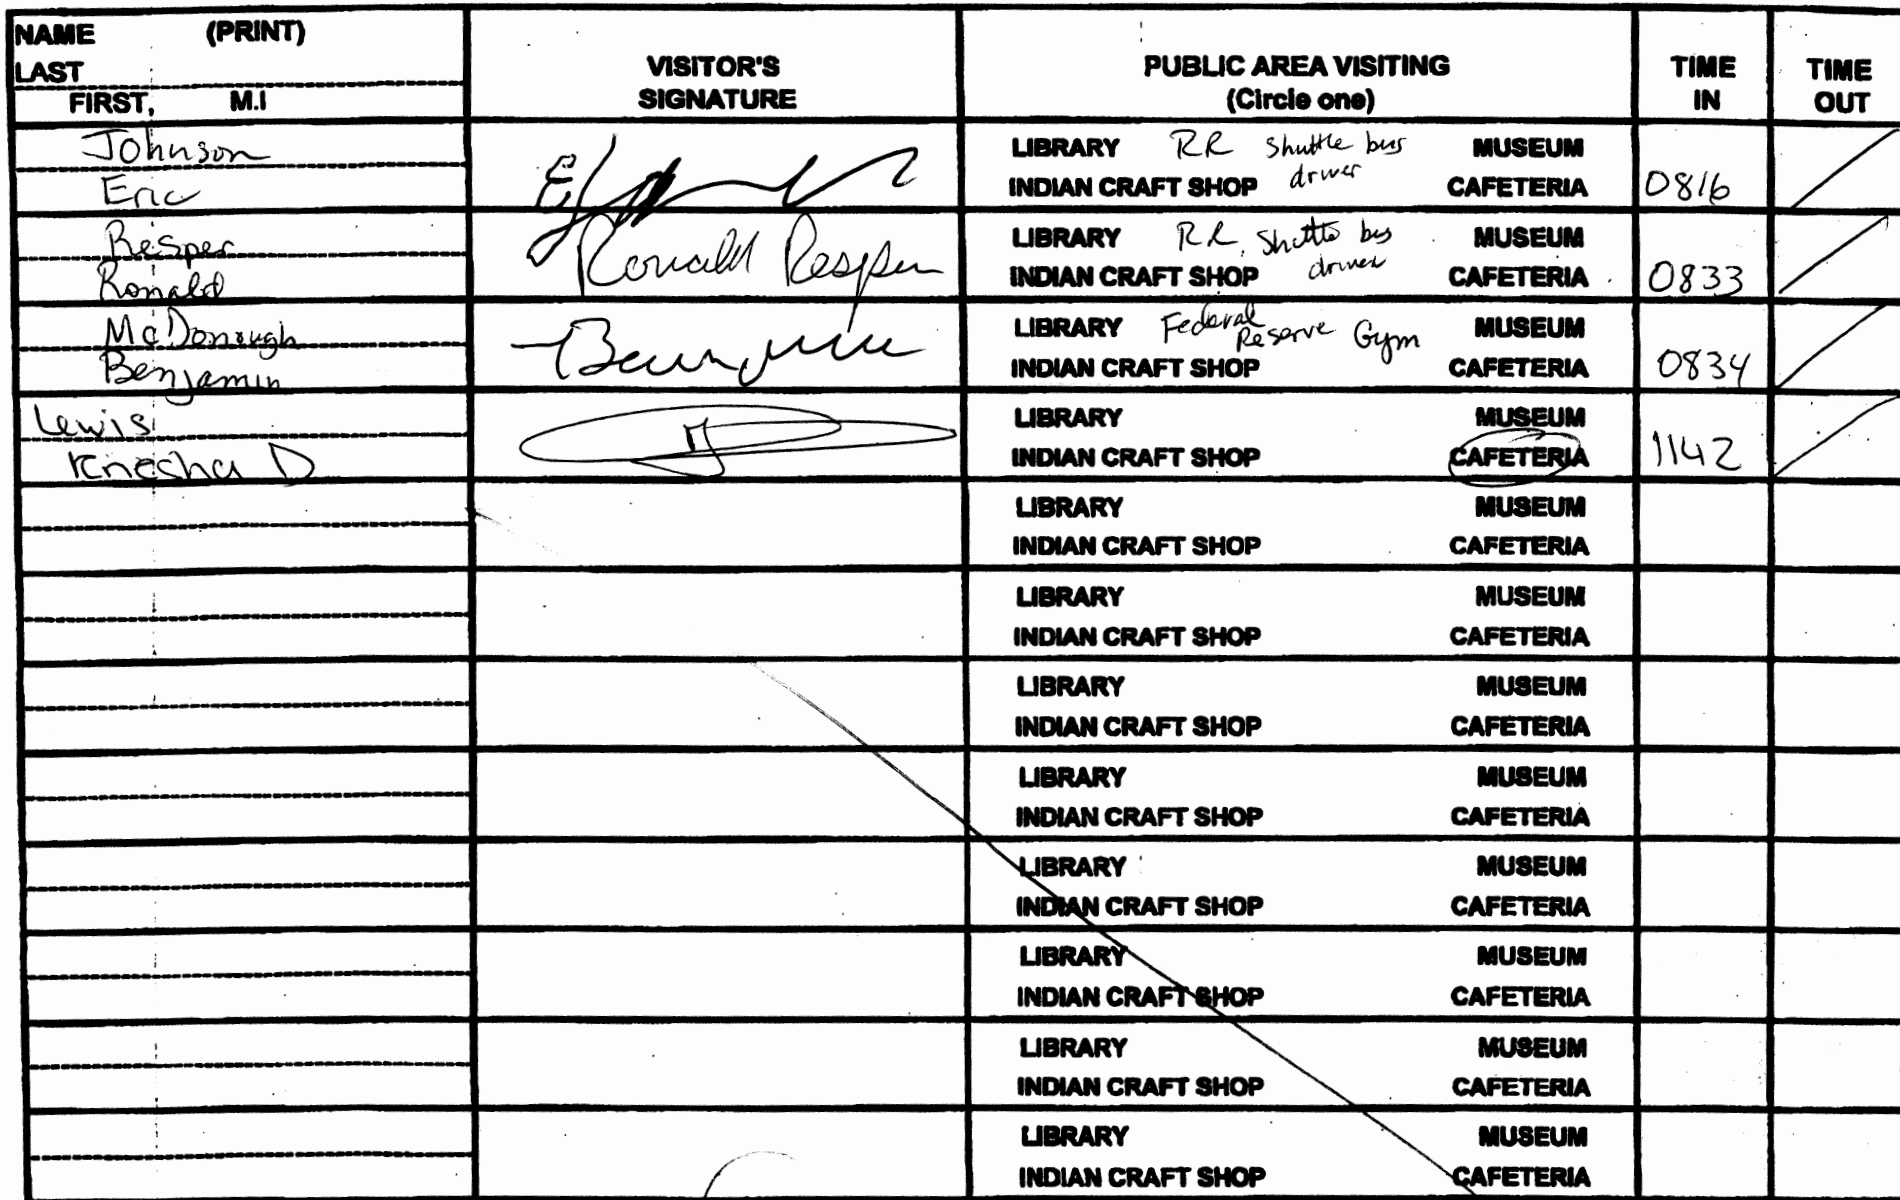 NAME (PRINT)
LAST
FIRST, M.I
VISITOR'S
SIGNATURE
PUBLIC AREA VISITING
(Circle one)
TIME
IN
TIME
OUT
Johnson
Eric
LIBRARY RR Shuttle bus MUSEUM
INDIAN CRAFT SHOP driver CAFETERIA
0816
Resper
Ronald
Ronald Resper
LIBRARY RR, Shuttle bus MUSEUM
INDIAN CRAFT SHOP driver CAFETERIA
0833
McDonough
Benjamin
LIBRARY Federal Reserve Gym MUSEUM
INDIAN CRAFT SHOP CAFETERIA
0834
Lewis
Knesha D
LIBRARY MUSEUM
INDIAN CRAFT SHOP CAFETERIA
1142
LIBRARY MUSEUM
INDIAN CRAFT SHOP CAFETERIA
LIBRARY MUSEUM
INDIAN CRAFT SHOP CAFETERIA
LIBRARY MUSEUM
INDIAN CRAFT SHOP CAFETERIA
LIBRARY MUSEUM
INDIAN CRAFT SHOP CAFETERIA
LIBRARY MUSEUM
INDIAN CRAFT SHOP CAFETERIA
LIBRARY MUSEUM
INDIAN CRAFT SHOP CAFETERIA
LIBRARY MUSEUM
INDIAN CRAFT SHOP CAFETERIA
LIBRARY MUSEUM
INDIAN CRAFT SHOP CAFETERIA